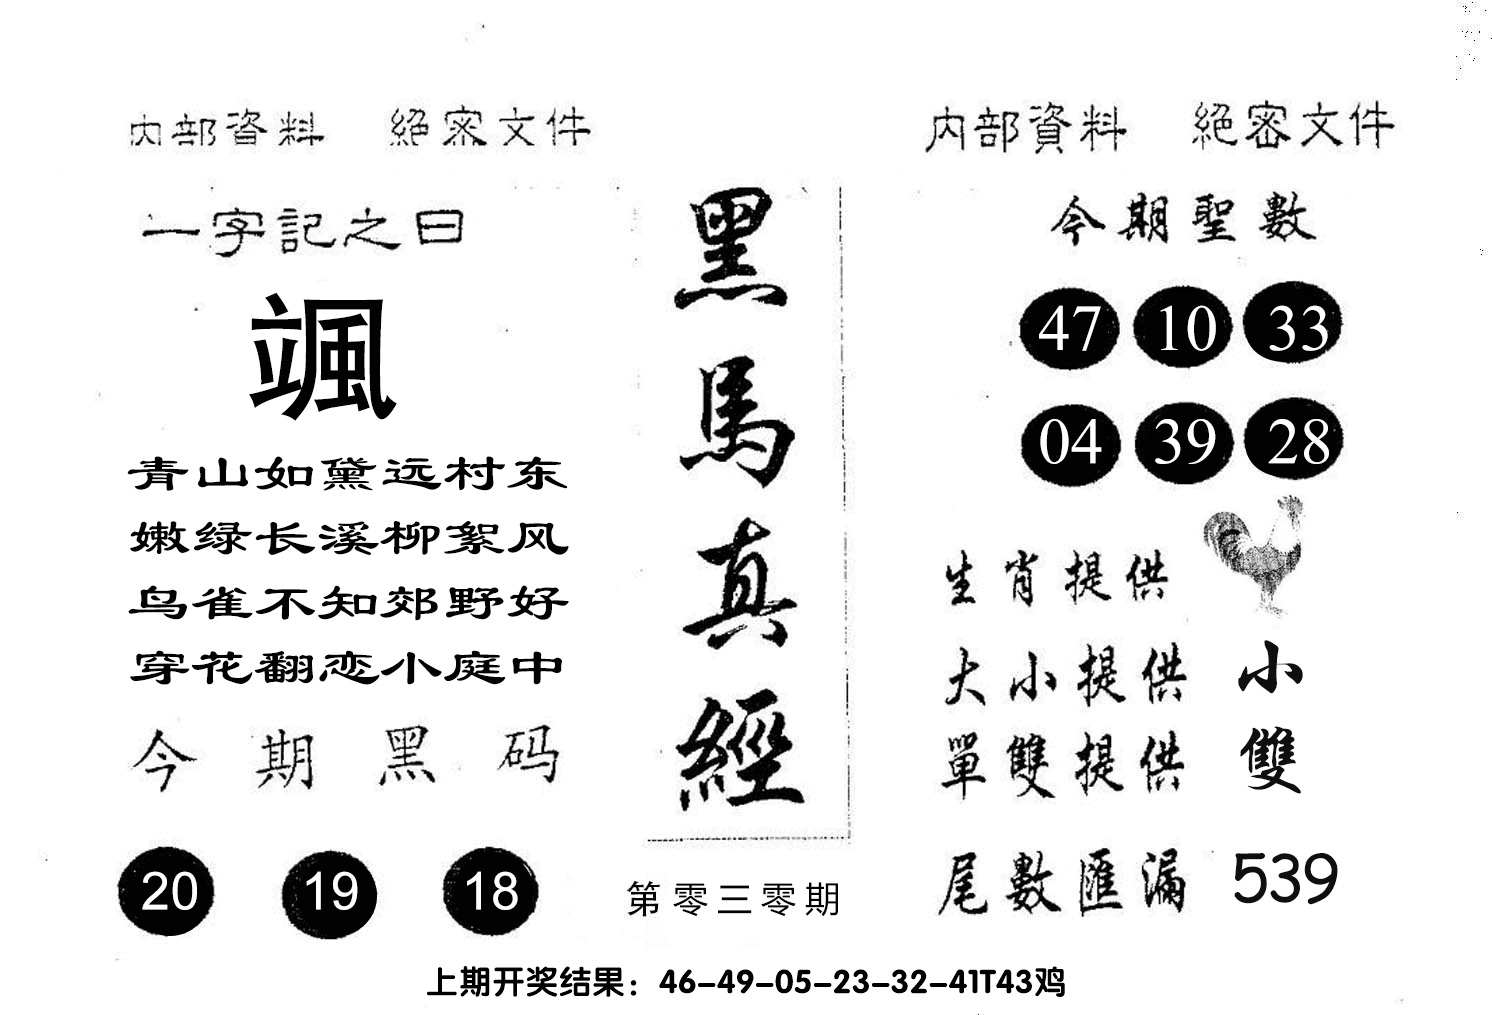 内部資料 絕密文件
一字記之曰
颯
青山如黛远村东
嫩绿长溪柳絮风
鸟雀不知郊野好
穿花翻恋小庭中
今期黑码
20 19 18
黑馬真經
第零三零期
内部資料 絕密文件
今期聖數
47 10 33
04 39 28
生肖提供
大小提供 小
單雙提供 雙
尾數匯漏 539
上期开奖结果：46-49-05-23-32-41T43鸡